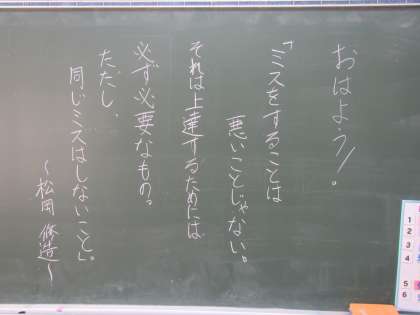 おはよう!。
「ミスをすることは
悪いことじゃない。
それは上達するためには
必ず必要なもの。
ただし、
同じミスはしないこと」。
~松岡 修造~
1
2
3
4
5
6